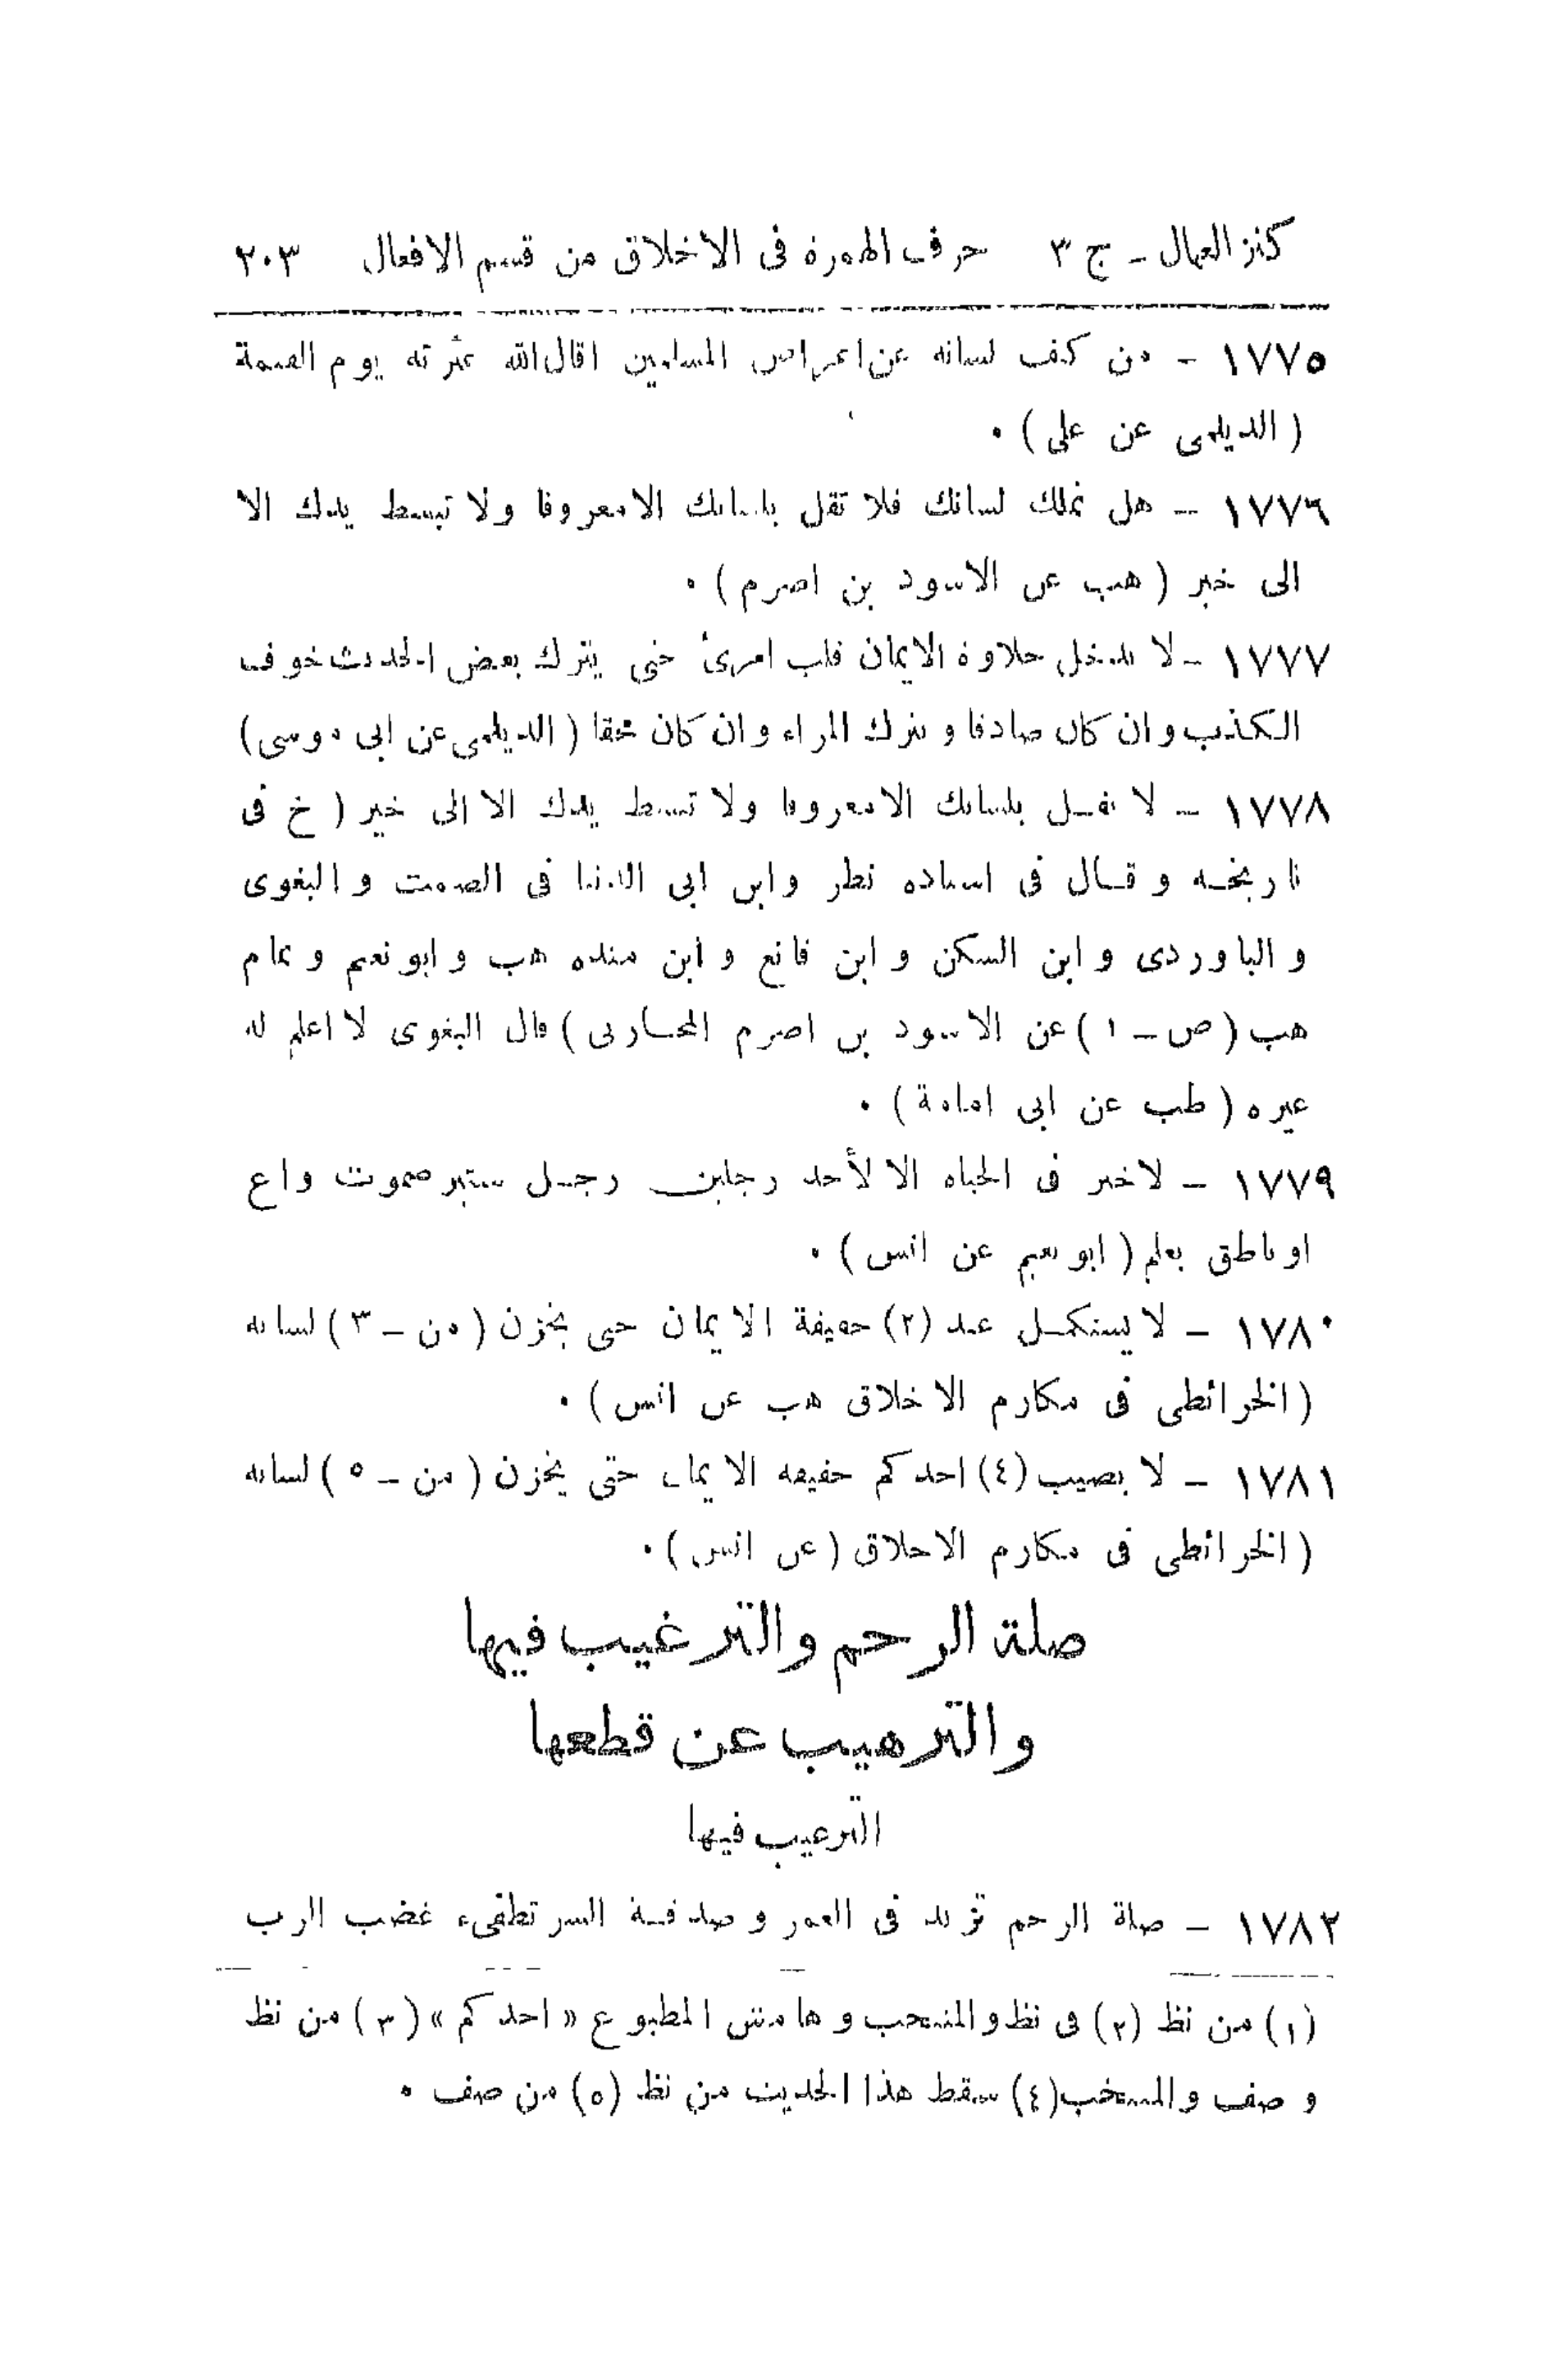 كنز العمال ـ ج ٣ حرف الهمزة فى الاخلاق من قسم الافعال ٢٠٣
١٧٧٥ ـ من كف لسانه عن اعراض المسلمين اقال الله عثرته يوم القيمة
( الديلمى عن على ) ٠
١٧٧٦ ـ هل تملك لسانك فلا تقل بلسانك الا معروفا ولا تبسط يدك الا
الى خير ( هب عن الاسود بن اصرم ) ٠
١٧٧٧ ـ لا تدخل حلاوة الايمان قلب امرئ حتى يترك بعض الحديث خوف
الكذب وان كان صادقا ويترك المراء وان كان محقا ( الديلمى عن ابى موسى )
١٧٧٨ ـ لا تقـل بلسانك الا معروفا ولا تبسط يدك الا الى خير ( خ فى
تاريخـه وقـال فى اسناده نظر وابن ابى الدنيا فى الصمت والبغوى
والباوردى وابن السكن وابن قانع وابن منده هب وابو نعيم وتمام
هب ( ص ـ ١ ) عن الاسود بن اصرم المحـاربى ) قال البغوى لا اعلم له
غيره ( طب عن ابى امامة ) ٠
١٧٧٩ ـ لا خير فى الحياه الا لأحد رجلين رجـل ستير صموت واع
او ناطق بعلم ( ابو نعيم عن انس ) ٠
١٧٨٠ ـ لا يستكمـل عبد (٢) حقيقة الايمان حتى يخزن ( من ـ ٣ ) لسانه
( الخرائطى فى مكارم الاخلاق هب عن انس ) ٠
١٧٨١ ـ لا يصيب (٤) احدكم حقيقه الايمان حتى يخزن ( من ـ ٥ ) لسانه
( الخرائطى فى مكارم الاخلاق ( عن انس ) ٠
صلة الرحم والترغيب فيها
والترهيب عن قطعها
الترغيب فيها
١٧٨٢ ـ صلة الرحم تزيد فى العمر وصدقـة السر تطفىء غضب الرب
(١) من نظ (٢) فى نظ والمنتخب وهامش المطبوع « احدكم » (٣) من نظ
وصف والمنتخب (٤) سقط هذا الحديث من نظ (٥) من صف ٠